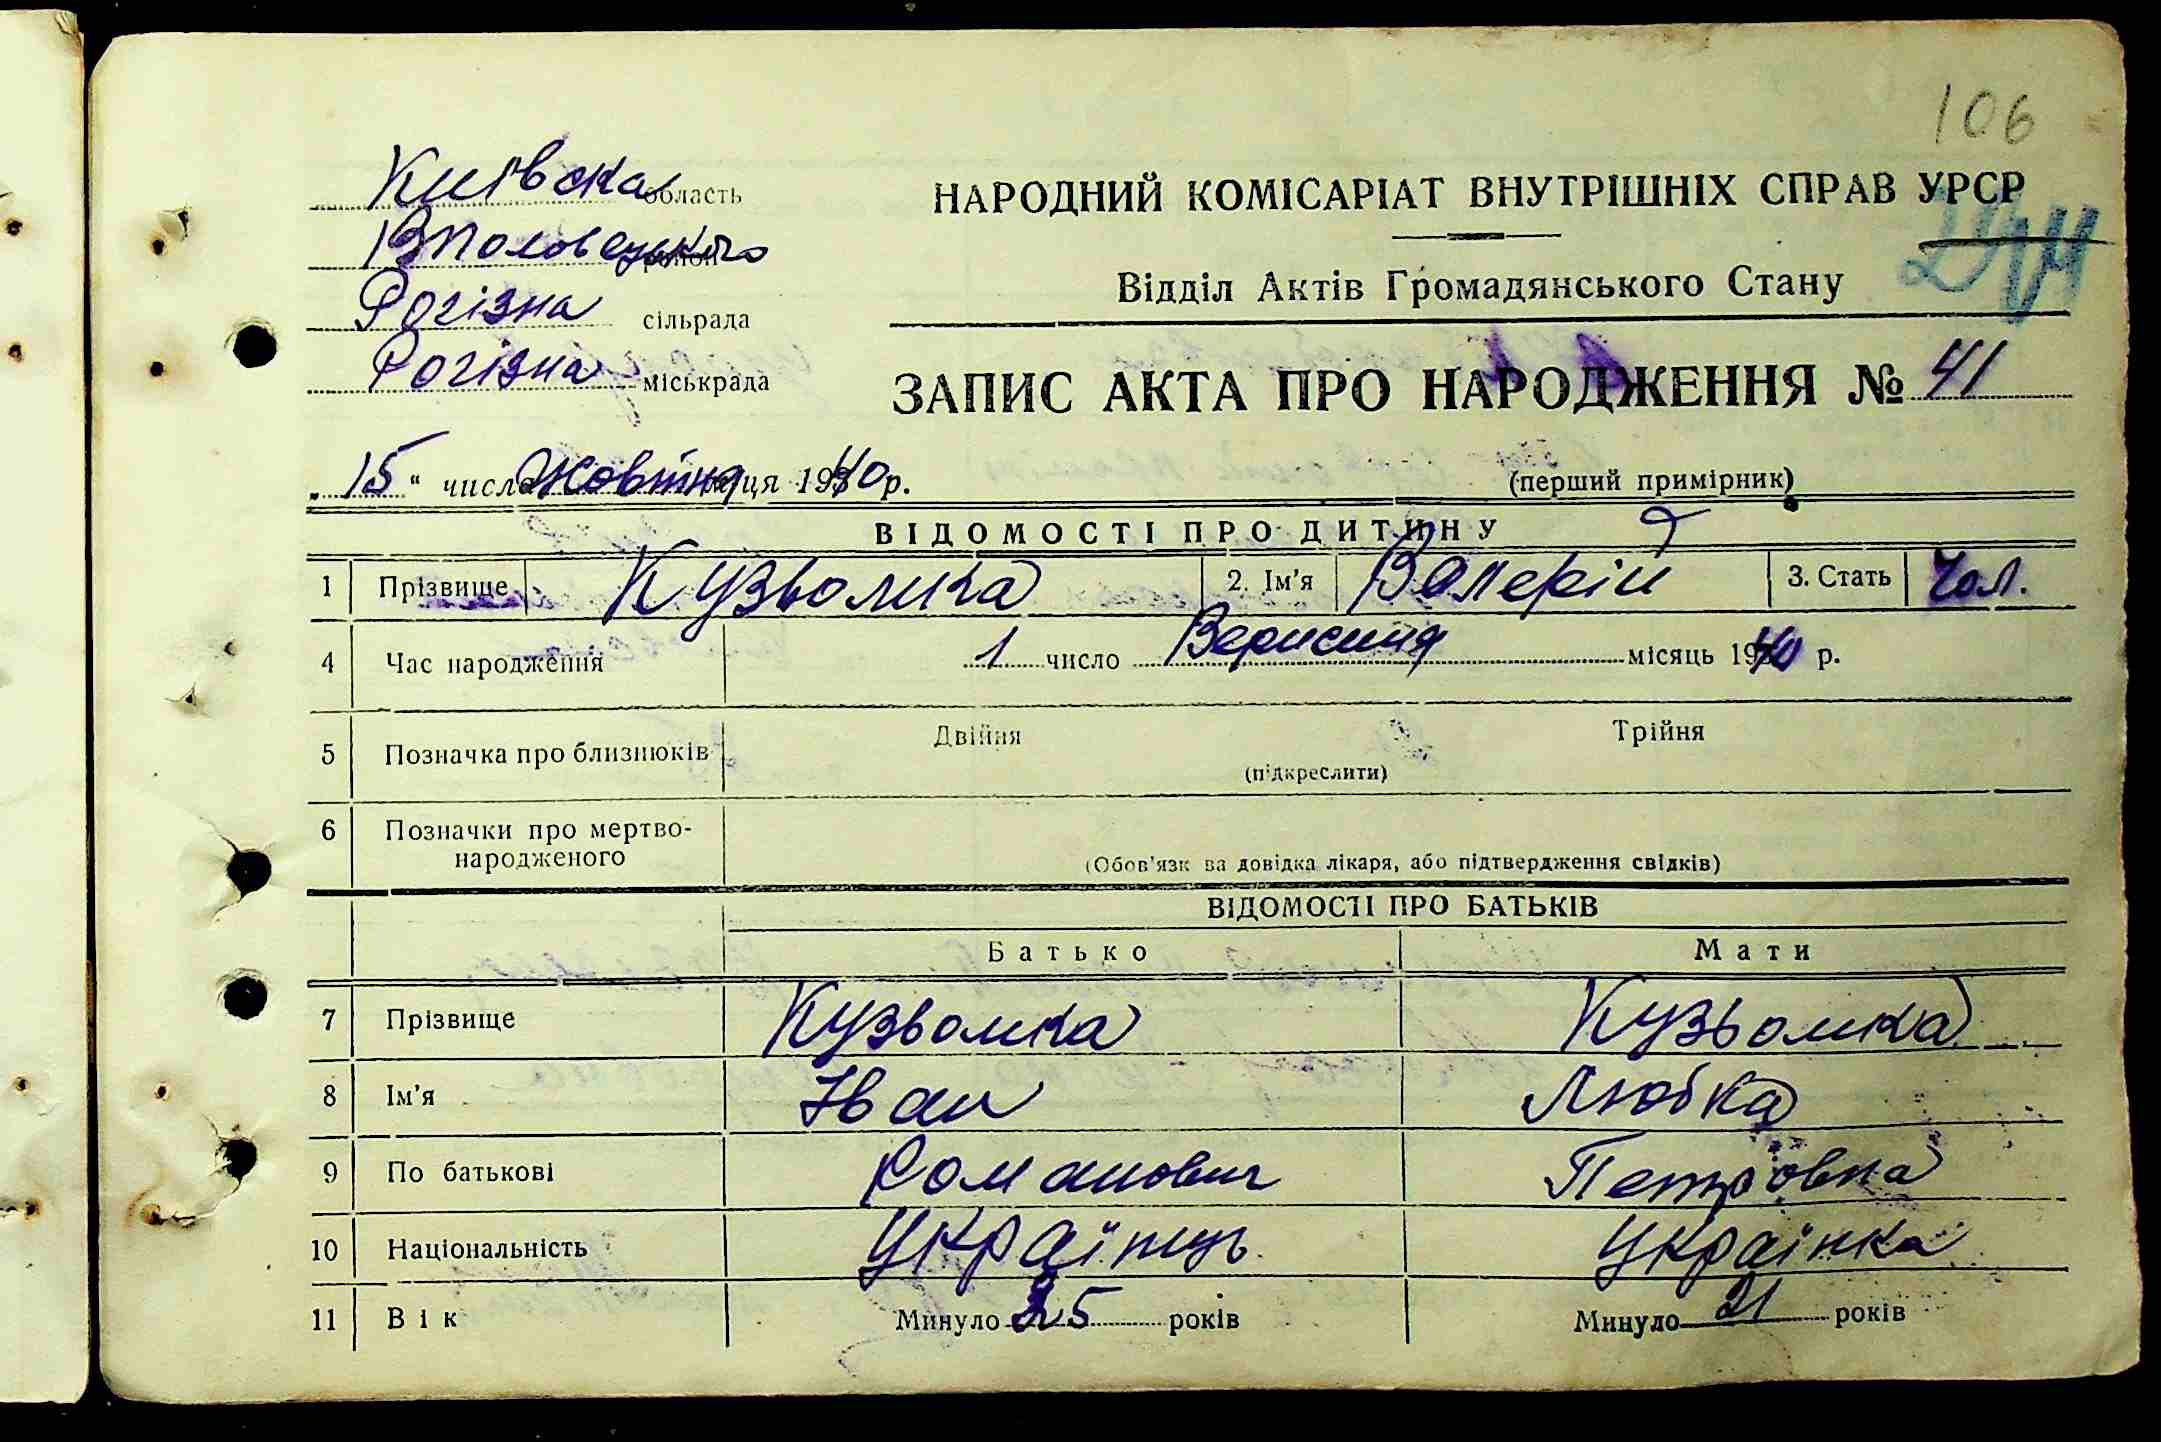 106
Київска область
Вполовецького район
Рогізна сільрада
Рогізна міськрада
НАРОДНИЙ КОМІСАРІАТ ВНУТРІШНІХ СПРАВ УРСР
Відділ Актів Громадянського Стану
ЗАПИС АКТА ПРО НАРОДЖЕННЯ № 41
„15“ числа Жовтня місяця 1940 р.
(перший примірник)
ВІДОМОСТІ ПРО ДИТИНУ
1 Прізвище Кузьомка 2. Ім'я Валерій 3. Стать Чол.
4 Час народження 1 число Вересния місяць 1940 р.
5 Позначка про близнюків Двійня Трійня
(підкреслити)
6 Позначки про мертво-
народженого
(Обов'язкова довідка лікаря, або підтвердження свідків)
ВІДОМОСТІ ПРО БАТЬКІВ
Батько Мати
7 Прізвище Кузьомка Кузьомка
8 Ім'я Іван Любка
9 По батькові Романович Петровна
10 Національність Українць Українка
11 Вік Минуло 25 років Минуло 21 років